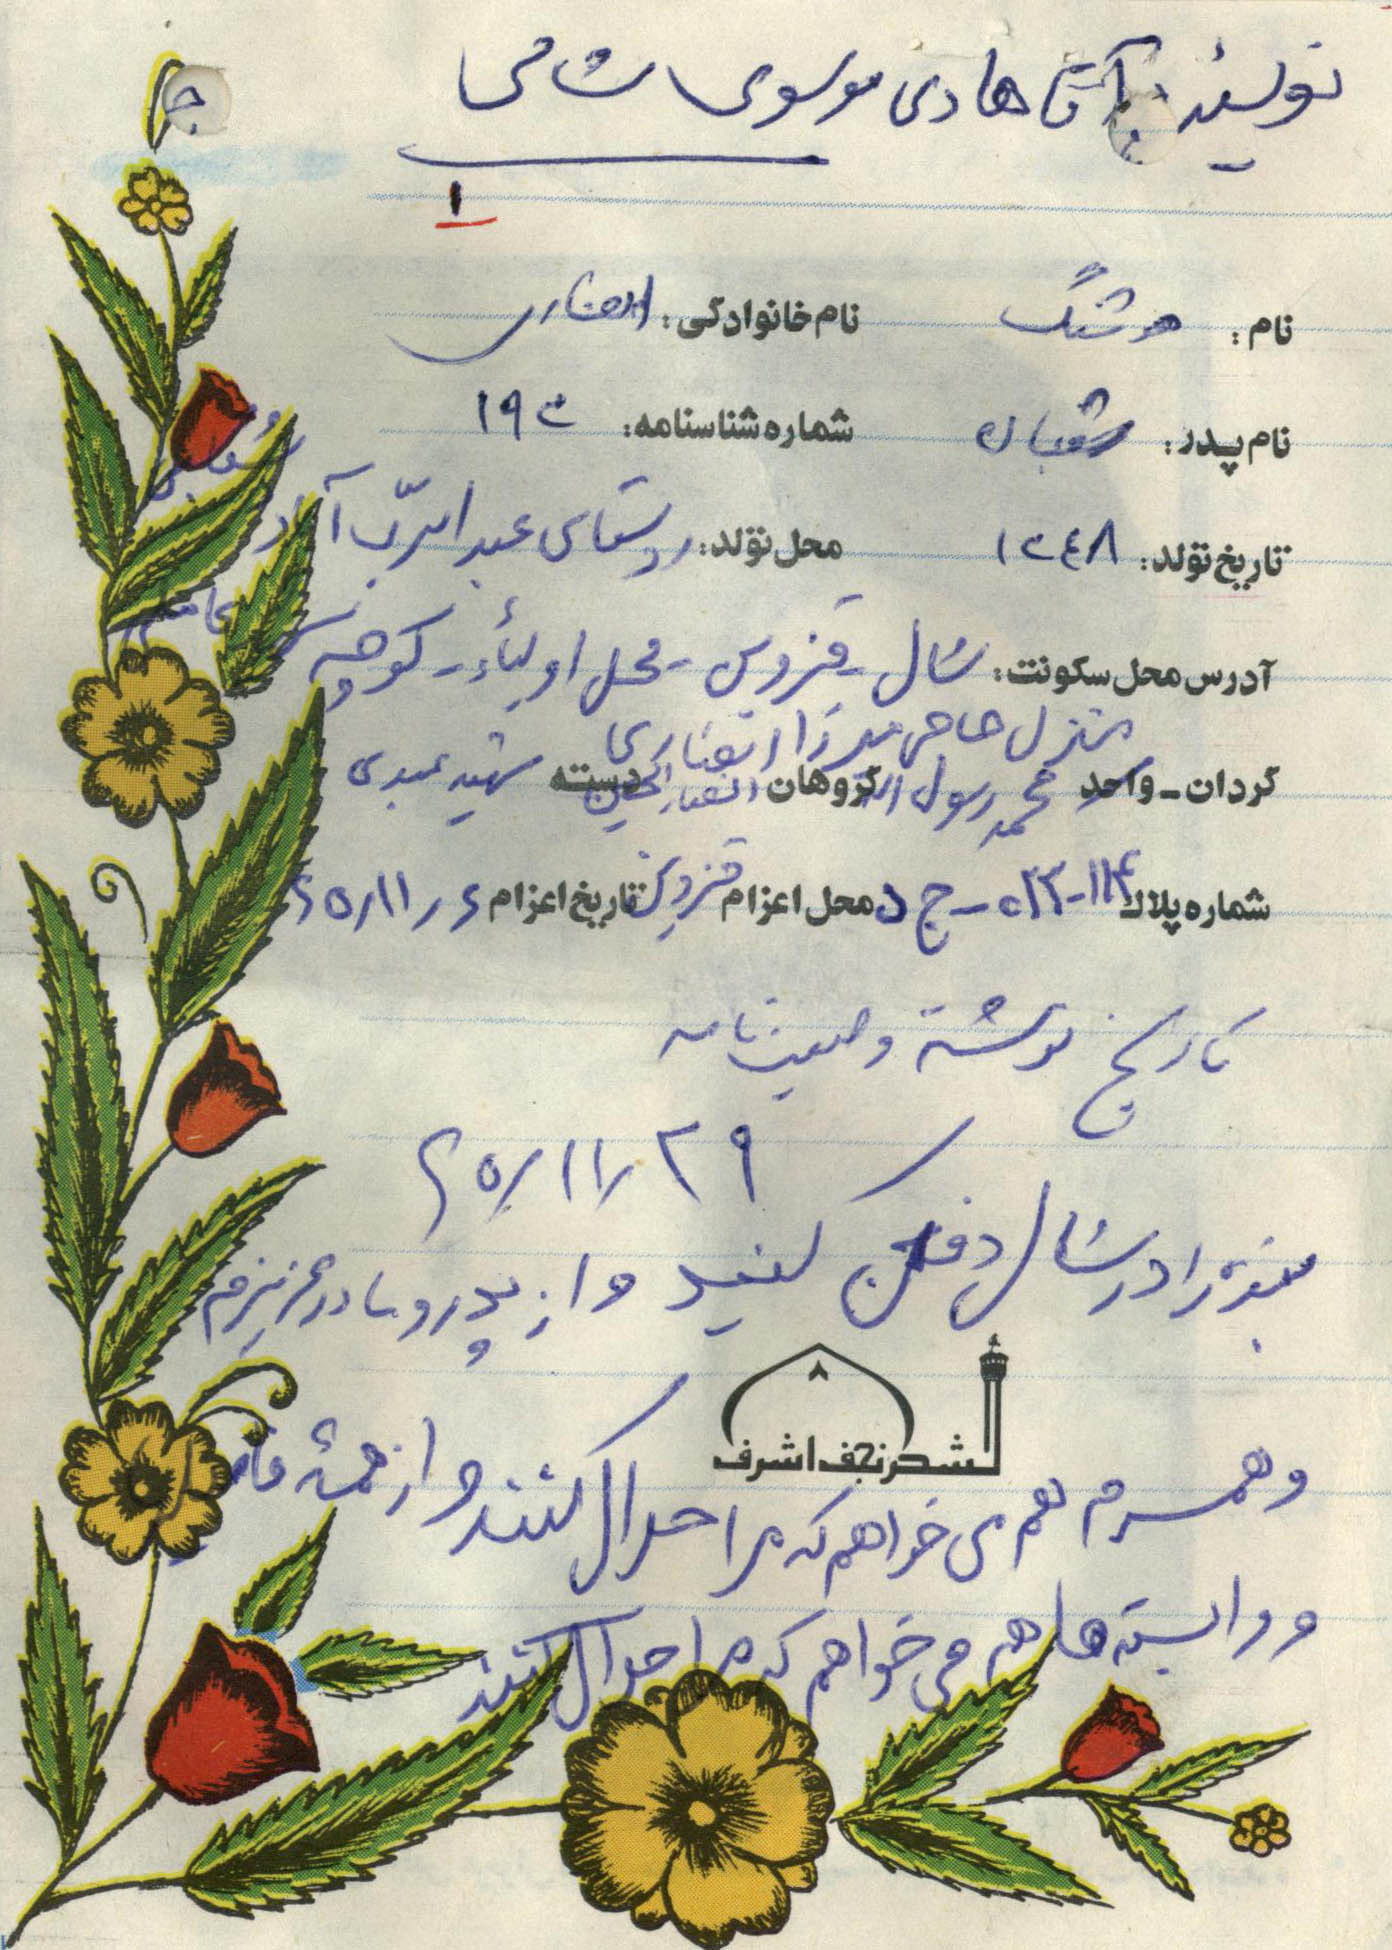 نویسنده: آقا هادی موسوی شامی
ج
۱
نام: هوشنگ نام خانوادگی: انصاری
نام پدر: شعبان شماره شناسنامه: ۱۹۳
تاریخ تولد: ۱۳۴۸ محل تولد: روستای عبدالرب آباد
آدرس محل سکونت: شال - قزوین - محل اولیاء - کوچه
منزل حاجی میرزا انصاری
گردان - واحد محمد رسول الله گروهان انصار الحسین دسته شهید عبدی
شماره پلاک ۱۱۴-۰۲۳ - ج د محل اعزام قزوین تاریخ اعزام ۶ ر ۱۱ ر ۶۵
تاریخ نوشته وصیتنامه
۲۹ ر ۱۱ ر ۶۵
بنده را در شال دفن کنید و از پدر و مادر عزیزم
لشکر نجف اشرف
و همسرم هم می خواهم که مرا حلال کنند و از همهٔ
و وابسته ها هم می خواهم که مرا حلال کنند